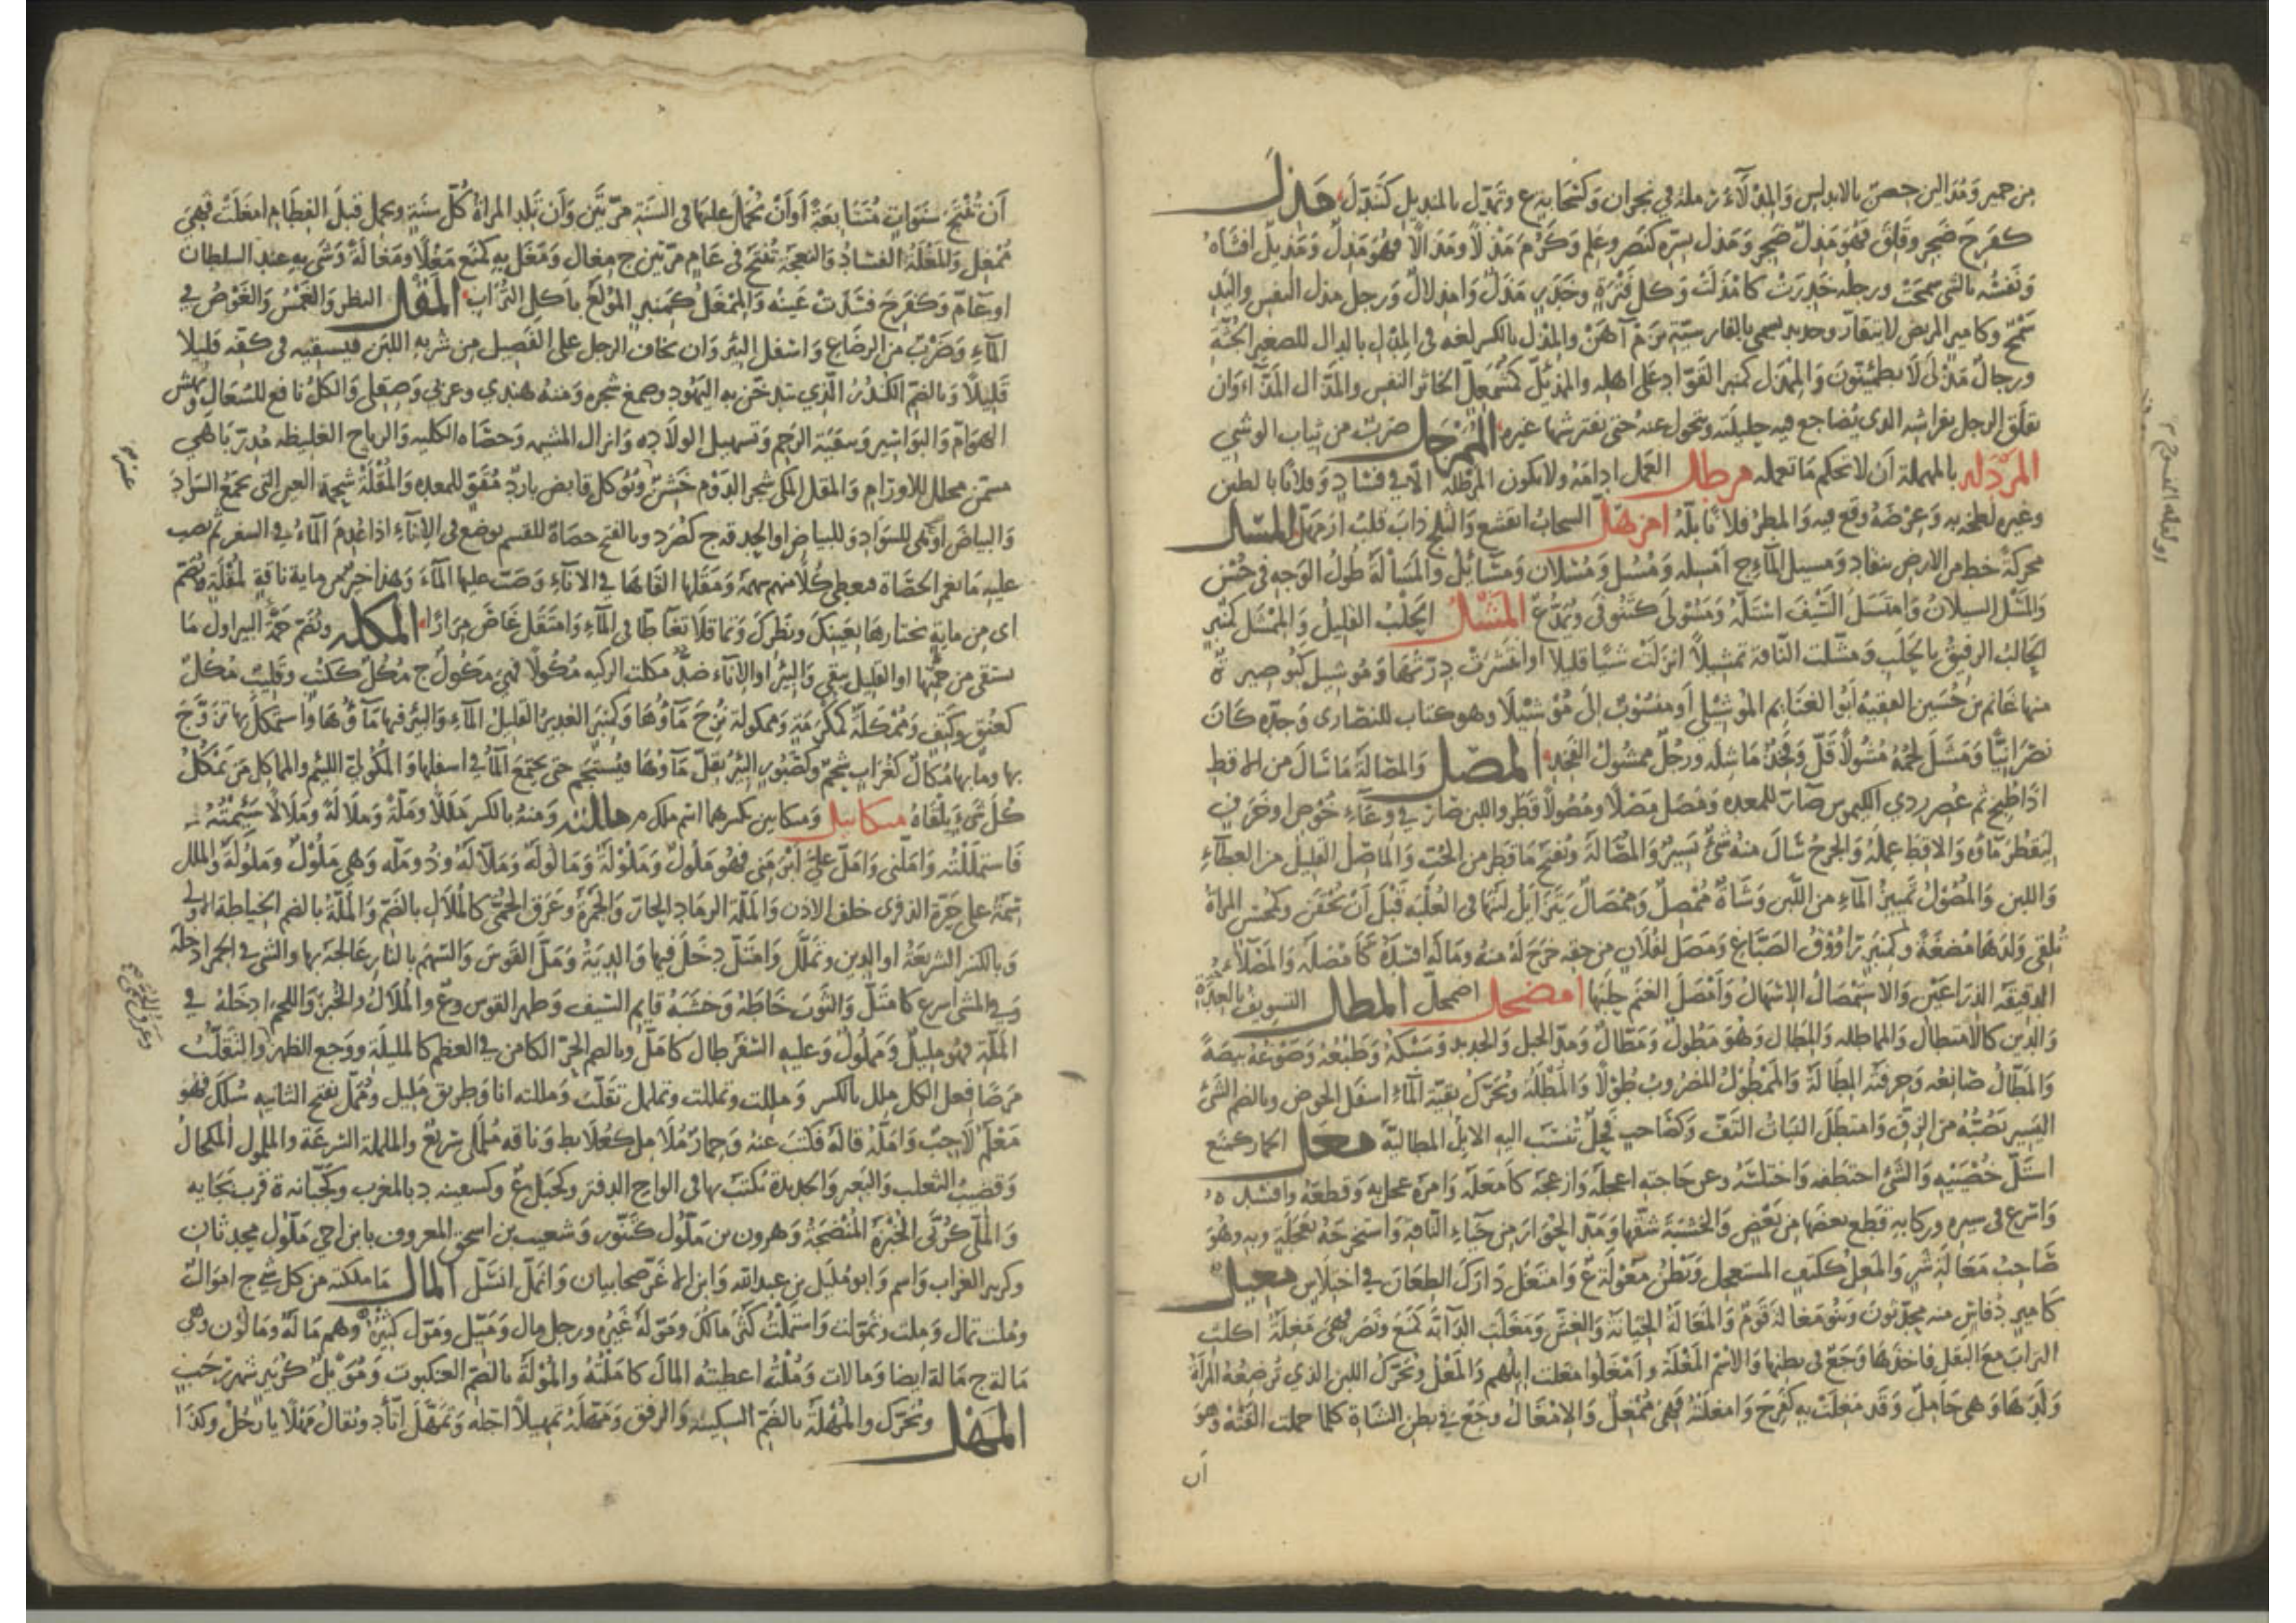 من حمير ومُدَالين حصن بالاندلس والمِدْلَاءُ رملة في نجران وكسَحابة ع وتَمَدَّل بالمنديل كتَنَدَّلَ مَذِلَ
كفَرِحَ ضَجِرَ وقَلِقَ فهو مَذِلٌ ضَجِر ومَذِل بسره كنصر وعلم وكرم مَذْلًا ومِذالًا فهو مَذِلٌ ومَذيلٌ افشاه
ونفسُه بالشيء سمحت ورجلُه خَدِرَت كامْذَلَّت وكل فترة وخدر مَذَلٌ وامذلال ورجل مذل النفس واليد
سَمْحٌ وكامير المريض لا يتقارّ وحديد يسمى بالفارسية نَرْم آهَنْ والمِذْل بالكسر لغة في المِدْل بالدال للصغير الجُثّة
ورجالٌ مَذْلى لا يطمئنون والمِمذَل كمنبر القوّاد على اهله والممذئل كمشمعل الخاثر النفس والمذال المذاء وان
يقلق الرجل بفراشه الذي يُضاجع فيه حليلته ويتحول عنه حتى يفترشها غيره المُمَرْجَل ضربٌ من ثياب الوشي
المَرْدَلة بالمهملة أن لا تحكم ما تعمله مرطل العمل ادامه ولا يكون المرطلة الا في فساد وفلانا بالطين
وغيره لطخه به وعِرضه وقع فيه والمطرُ فلانًا بلّه امزهلّ السحاب انقشع والثلج ذاب قلب ازمهلّ المسل
محركة خط من الارض ينقاد ومسيل الماء ج امسلة ومُسُل ومُسْلان ومَسَائِل والمَسَالة طول الوجه في حُسْن
والمَسْل السيلان وامتسل السيف استلّه ومَسُولَى كتَنُوفَى ويُمَدّ ع المَشْل الحلب القليل والمِمْشَل كمنبر
الحالب الرفيق بالحلب ومشّلت الناقة تمشيلًا انزلت شيئا قليلا او انتشرت درّتها ومُوشِيل كبُوصير ة
منها غانم بن حُسَين الفقيه أبو الغنايم الموشيلي أو منسوب إلى مُوشيلا وهو كتاب للنصارى وجده كان
نصرانيًّا ومَشَلَ لحمه مُشُولًا قَلَّ وفَخِذ ماشلة ورجل ممشول الفخذ المَصْل والمُصالة ما سال من الاقط
اذا طُبِخ ثم عُصِر ردي الكيموس ضارّ للمعدة ومَصَل مَصْلًا ومُصُولًا قَطَر واللبن صار في وعاء خُوص او خزف
ليقطر ماؤه والاقط عمله والجُرح سال منه شيء يسير والمُصالة وتفتح ما قطر من الحب والماصل القليل من العطاء
واللبن والمُصُول تمييز الماء من اللبن وشاة مُمْصِلٌ ومِمْصالٌ يتزايل لبنها في العُلبة قبل أن تُحقَن وكمحسن المرأة
تُلقي ولدها مُضغة وكمنبر راووق الصباغ ومصل لفلان من حقه خرج له منه وماله افسده كامصله والمصلاء
الدقيقة الذراعين والاستمصال الاسهال وأمصل الغنم حلبها امضحلّ اضمحلّ المطل التسويف بالعدة
والدين كالامتطال والمماطلة والمطال وهو مَطُولٌ ومَطّالٌ ومدّ الحبل والحديد وسَبْكه وطَبْعه وصَوْغه بيضة
والمطّال صانعه وحرفته المِطالة والممطول المضروب طولًا والمَطْلَة وتحرك بقية الماء اسفل الحوض وبالضم الشيء
اليسير تصُبّه من الزق وامتطل النبات التفّ وكصاحب فحل تُنسب اليه الابل الماطلية معل الحمار كمنع
استلّ خُصييه والشيء اختطفه واختلسه وعن حاجته اعجله وازعجه كامعله وامره عجل به وقطعه وافسده
واسرع في سيره وركابه قطع بعضها من بعض والخشبة شقها ومدّ الحُوار من حياء الناقة واستخرجه بعجلة وبه وهو
صاحب مَعَالة شر والمعل ككتف المستعجل وبطن مَعُولة ع وامتعل دارك الطعان في اختلاس مغيل
كامير دُ فاس منه محدثون وبنو مَغالة قوم والمَغالة الخيانة والغش ومغلت الدابة كمنع ونصر فهي مَغِلة اكلت
التراب مع البقل فاخذها وجع في بطنها والاسم المَغْلة وأمغلوا مغلت ابلهم والمَغْل ويحرك اللبن الذي تُرضعه المرأة
ولدها وهي حامل وقد مغلت به كفرح وامغلته فهي مُمْغِل والامغال وجع في بطن الشاة كلما حملت القته وهو
أن
أن تُنتَج سنوات متتابعة أو أن يُحمل عليها في السنة مرتين وأن تلد المرأة كل سنة وتحمل قبل الفطام امغلت فهي
مُمْغِل والمَغْلة الفساد والنعجة تنتج في عام مرتين ج مِغال ومَغَل به كمنع مَغْلًا ومَغالة وشى به عند السلطان
او عامّ وكفرح فسدت عينه والمِمغل كمنبر المولع باكل التراب المَقْل النظر والغَمْس والغوص في
الماء وضربٌ من الرضاع واسفل البئر وان يخاف الرجل على الفصيل من شربه اللبن فيسقيه في كفه قليلا
قليلًا وبالضم الكُندُر الذي يتدخّن به اليهود وصمغ شجرة ومنه هندي وعربي وصقلي والكل نافع للسعال ونهش
الهوام والبواسير وتنقية الرحم وتسهيل الولادة وانزال المشيمة وحصاة الكلية والرياح الغليظة مُدِرّ باهي
مسمن محلل للاورام والمقل المكي ثمر الدوم خَشِن يؤكل قابض بارد مُقوّ للمعدة والمُقْلة شحمة العين التي تجمع السواد
والبياض او هي السواد والبياض او الحدقة ج كصُرَد وبالفتح حصاة للقسم توضع في الاناء اذا عُدِم الماء في السفر ثم يصب
عليه ما يغمر الحصاة فيعطى كُلًّا منهم سهمه ومقلها القاها في الاناء وصبّ عليها الماء وهذا خير من ماية ناقة لمقلة وتضم
اي من ماية يختارها بعينك ونظرك وتماقلا تغاطّا في الماء وامتقل غاص مرارًا المكلة وتضم جمّة البير او اول ما
يستقى من جمتها او القليل يبقى في البئر او الاناء ضدٌّ مكلت الركية مُكولًا فهي مَكُول ج مُكُلٌ ككتب وقليب مُكُلٌ
كعنق وكتف ومُمْكَلة كمُكرَمة وممكولة نزح ماؤها وكمنبر الغدير القليل الماء والبئر فيها ماؤها واستمكل بها تزوج
بها وما بها مُكال كغراب شحم وكصبور البئر يقلّ ماؤها فيستجم حتى يجتمع الماء في اسفلها والمكولي اللئيم والماكل من يمكل
كل شيء يلقاه ميكائيل وميكايين بكسرهما اسم ملك م مللته ومنه بالكسر مَلَلًا ومَلّة ومَلالة ومَلالًا سئمته
فاستمللته واملّني وامل عليّ ابرمني فهو مَلول ومَلولة ومالولة ومَلّالة وذو مَلّة وهي ملول وملولة والملل
سمة على حرّة الذفرى خلف الاذن والمَلّة الرماد الحار والجمر وعرق الحمى كالمُلال بالضم والمُلّة بالضم الخياطة الاولى
وبالكسر الشريعة او الدين وتملّل وامتلّ دخل فيها والدية ومَلّ القوس والسهم بالنار عالجه بها والشيء في الجمر ادخله
وفي المشي اسرع كامتلّ والثوب خاطه وخشبة قايم السيف وظهر القوس وع والمُلال والخبز واللحم ادخله في
الملّة فهو مليل ومملول وعليه السفر طال كأملّ وبالضم الحر الكامن في العظم كالمليلة ووجع الظهر والتقلب
مرضًا فعل الكل ملل بالكسر ومللت وتمللت وتململ تقلب ومللته انا وطريق مليل ومُمَلّ بفتح الثانية سُلك فهو
مَعْلم لاحب وامله قاله فكتب عنه وحمار مُلامل كعُلابط وناقة ململى سريع والململة السرعة والملمول المكحال
وقضيب الثعلب والبعير والحديدة يكتب بها في الواح الدفتر وكجبل ع وكسفينة د بالمغرب وكجبانة ة قرب بجاية
والمُلّى كرُبّى الخبزة المنضجة وهرون بن ملول كتنور وشعيب بن اسحق المعروف بابن اخي ملول محدثان
وكزبير الغراب واسم وابو مُليل بن عبدالله وابن الاغر صحابيان وانملّ انسلّ المال ما ملكته من كل شيء ج اموال
وملت تمال وملت وتمولت واستملت كثر مالك ومَوّله غيره ورجل مال ومَيّل ومَوّل كثيره وهم مالة ومالون وهي
مالة ج مالة ايضا ومالات ومُلته اعطيته المال كاملته والمولة بالضم العنكبوت ومُويل كزبير شهر رجب
المهل ويحرك والمُهلة بالضم السكينة والرفق ومهّله تمهيلًا اجّله وتمهّل اتأد ويقال مهلًا يا رجل وكذا